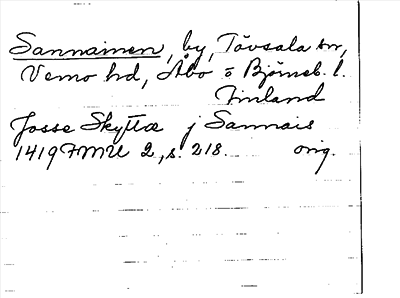 Sannainen, by, Tövsala sn,
Vemo hd, Åbo o Björneb. l.
Finland
Josse Skytta j Sannais
1419 FMU 2, s. 218. orig.